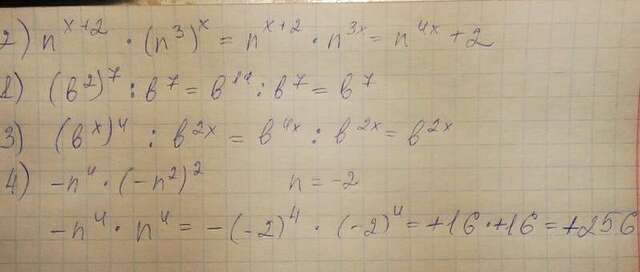 2) n^{x+2} · (n^3)^x = n^{x+2} · n^{3x} = n^{4x+2}
1) (b^2)^7 : b^7 = b^{14} : b^7 = b^7
3) (b^x)^4 : b^{2x} = b^{4x} : b^{2x} = b^{2x}
4) -n^4 · (-n^2)^2 n = -2
-n^4 · n^4 = -(-2)^4 · (-2)^4 = +16 · +16 = +256